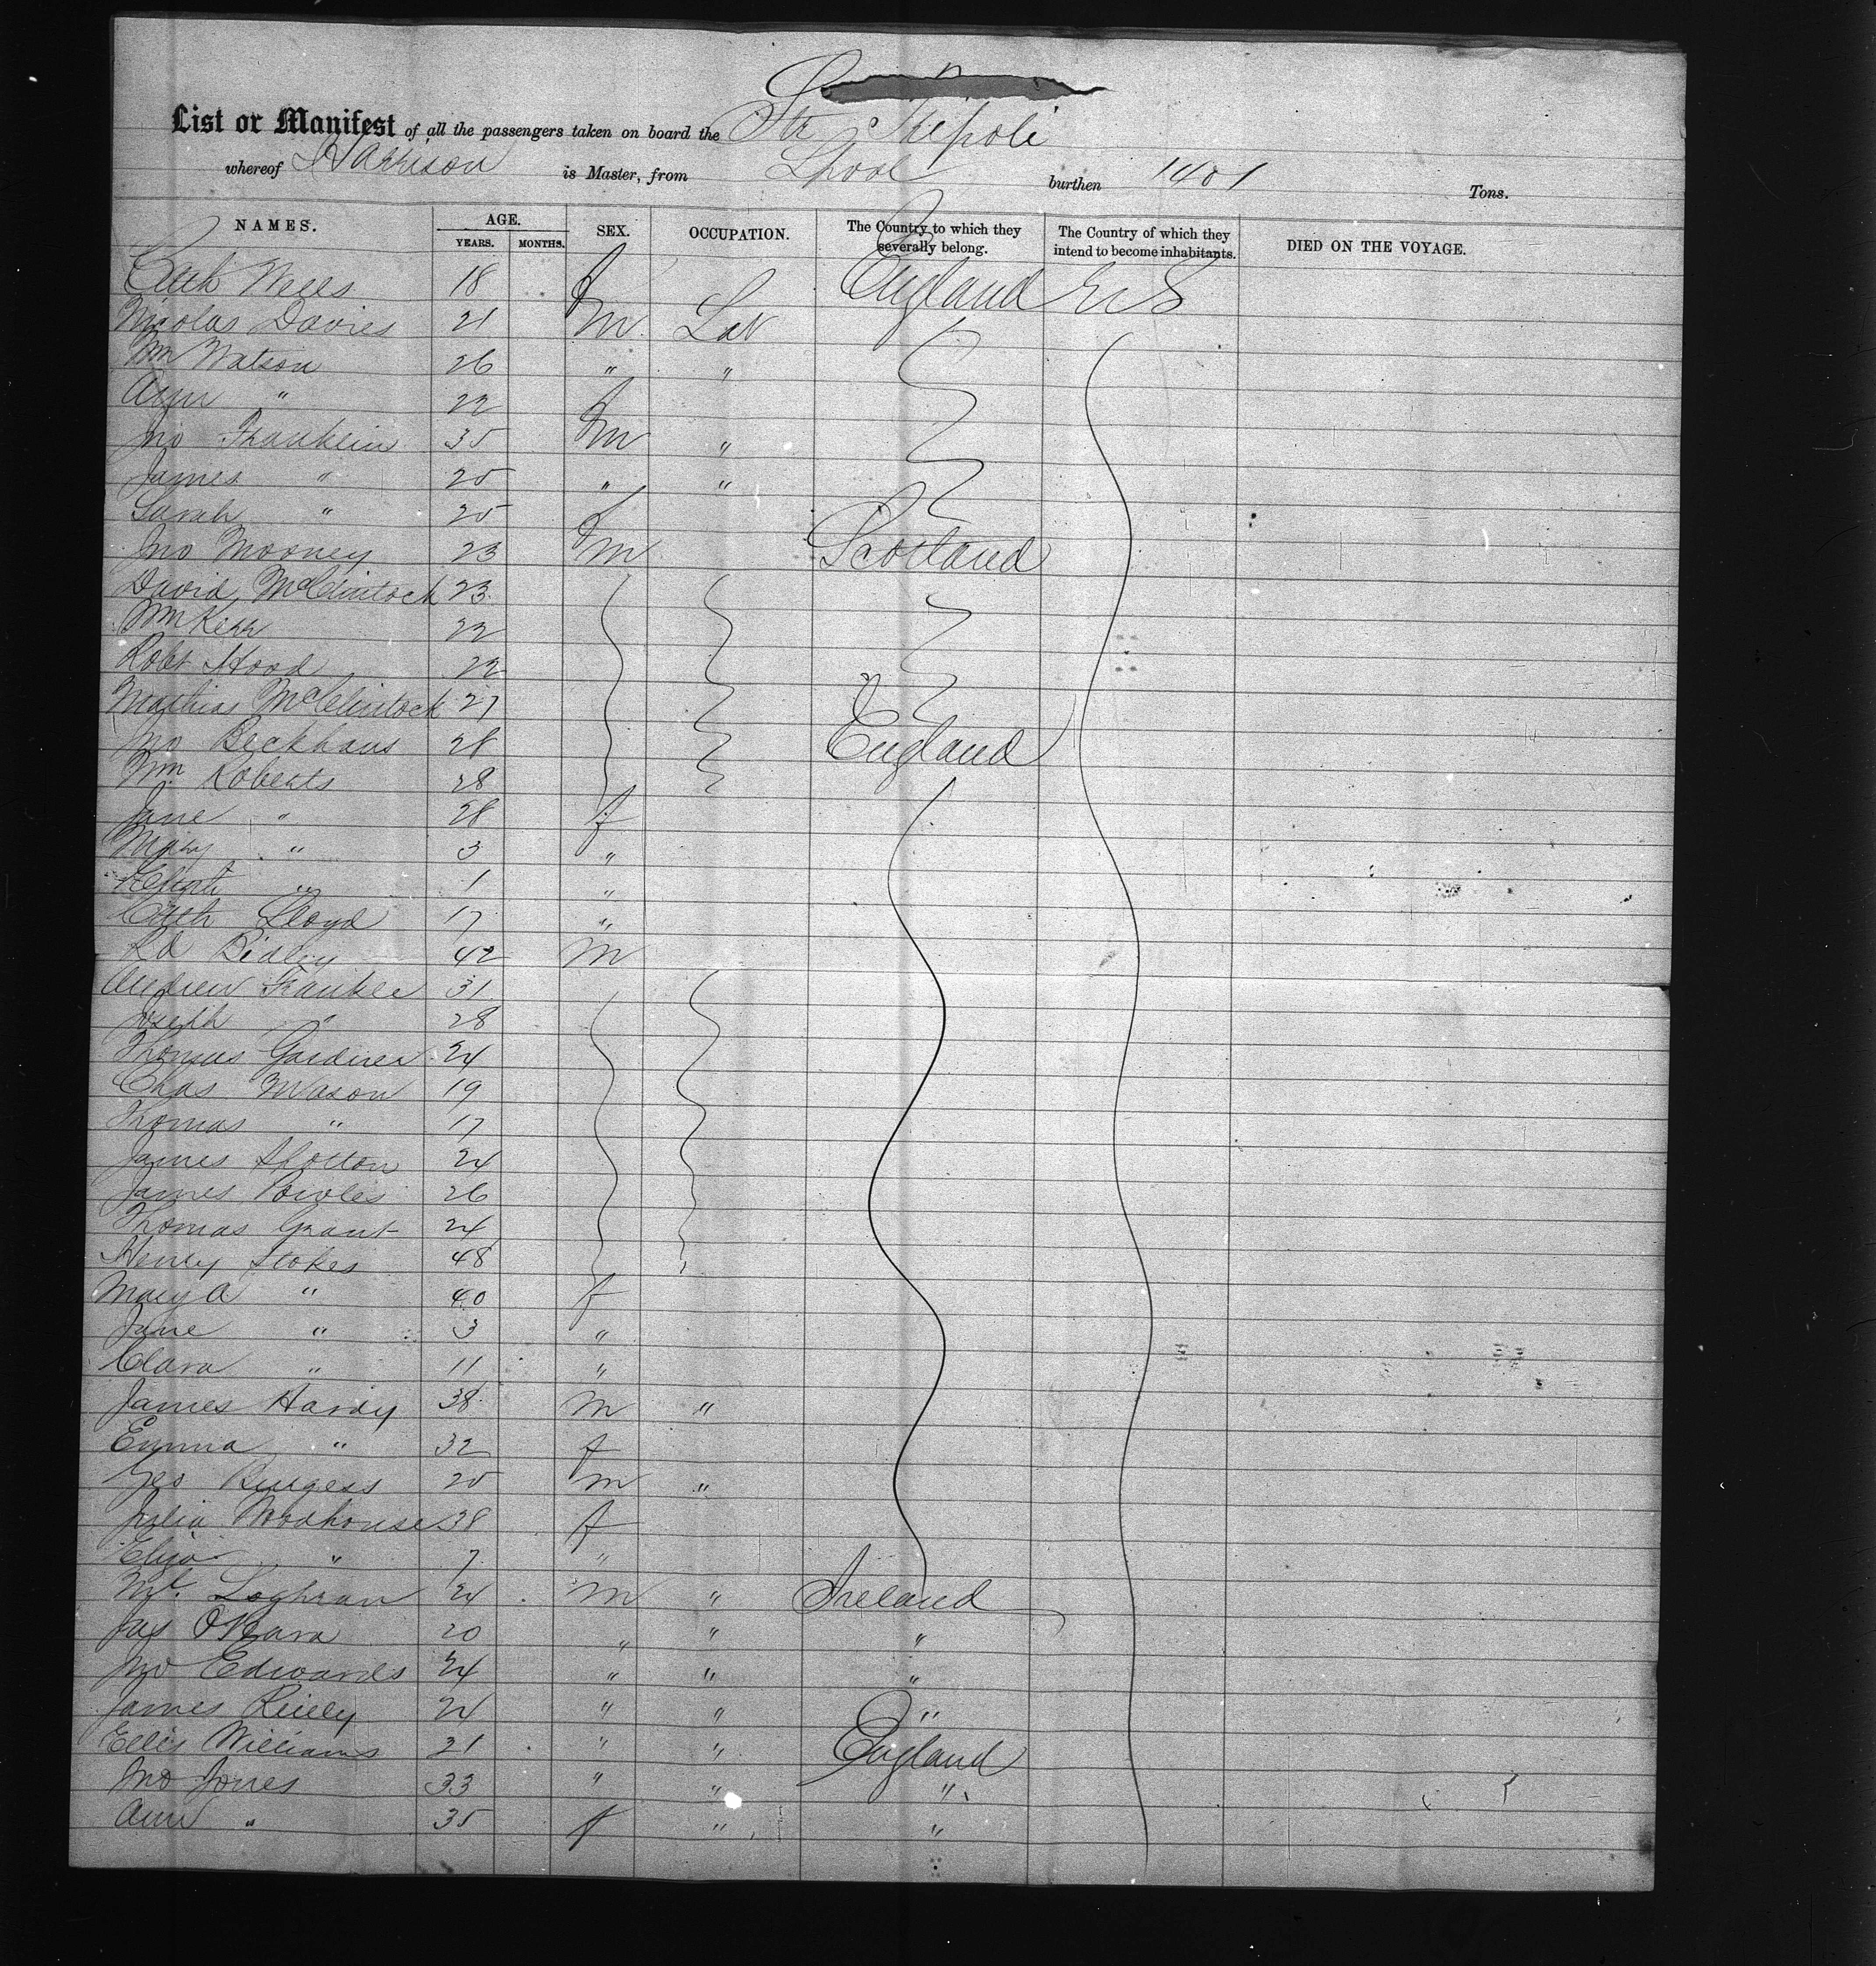 List or Manifest of all the passengers taken on board the Str Tripoli
whereof Harrison is Master, from Lpool burthen 1401 Tons.
NAMES. AGE. YEARS. MONTHS. SEX. OCCUPATION. The Country to which they severally belong. The Country of which they intend to become inhabitants. DIED ON THE VOYAGE.
Cath 18 f England U S
Nicolas Davies 21 m Lab
Wm Watson 26 " "
Ann " 22 f
Jno Franklin 35 m "
James " 20 " "
Sarah " 20 f
Jno Mooney 23 m Scotland
David McClintock 23
Wm Kerr 22
Robt Hood 22
Mathias McClintock 27
Jno Beckhaus 28 England
Wm Roberts 28
Jane " 28 f
Mary " 3 "
" 1 "
Cath Lloyd 17 "
Rd Ridley 42 m
Andrew 31
Joseph " 28
Thomas Gardner 24
Chas Mason 19
Thomas " 17
James 24
James Bowles 26
Thomas Grant 24
Henry Stokes 48
Mary A " 40 f
Jane " 3 "
Clara " 11 "
James Hardy 38 m "
Emma " 32 f
Geo Burgess 20 m "
Julia Woodhouse 38 f
Eliza " 7 "
Ml. Loghran 24 m " Ireland
Jas O'Hara 20 " " "
Jno Edwards 24 " " "
James Reilly 24 " " "
Ellis Williams 21 " " England
Jno Jones 33 " " "
Ann " 35 f " "